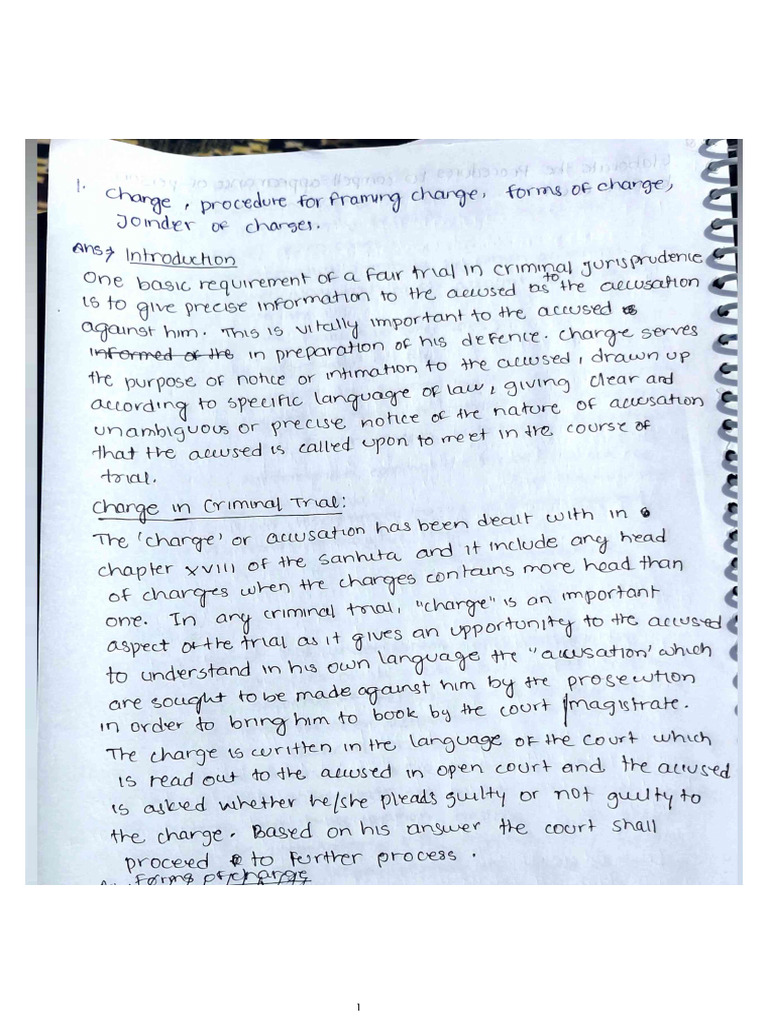 1. Charge, procedure for framing charge, forms of charge,
Joinder of charges.
Ans→ Introduction
One basic requirement of a fair trial in criminal jurisprudence
is to give precise information to the accused as to the accusation
against him. This is vitally important to the accused is
informed of the in preparation of his defence. Charge serves
the purpose of notice or intimation to the accused, drawn up
according to specific language of law, giving clear and
unambiguous or precise notice of the nature of accusation
that the accused is called upon to meet in the course of
trial.
Charge in Criminal Trial:
The 'charge' or accusation has been dealt with in
chapter XVIII of the Sanhita and it include any head
of charges when the charges contains more head than
one. In any criminal trial, "charge" is an important
aspect of the trial as it gives an opportunity to the accused
to understand in his own language the "accusation' which
are sought to be made against him by the prosecution
in order to bring him to book by the court /magistrate.
The charge is written in the language of the court which
is read out to the accused in open court and the accused
is asked whether he/she pleads guilty or not guilty to
the charge. Based on his answer the court shall
proceed to further process.
forms of charge
1